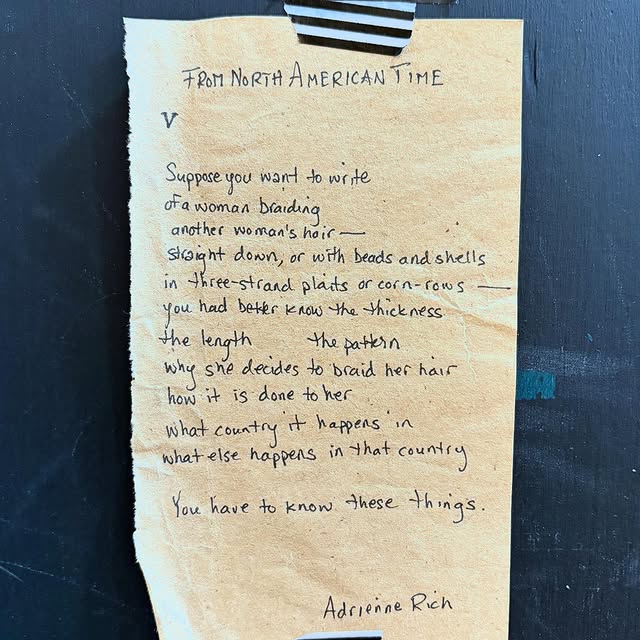 FROM NORTH AMERICAN TIME
V
Suppose you want to write
of a woman braiding
another woman's hair —
straight down, or with beads and shells
in three-strand plaits or corn-rows —
you had better know the thickness
the length the pattern
why she decides to braid her hair
how it is done to her
what country it happens in
what else happens in that country
You have to know these things.
Adrienne Rich